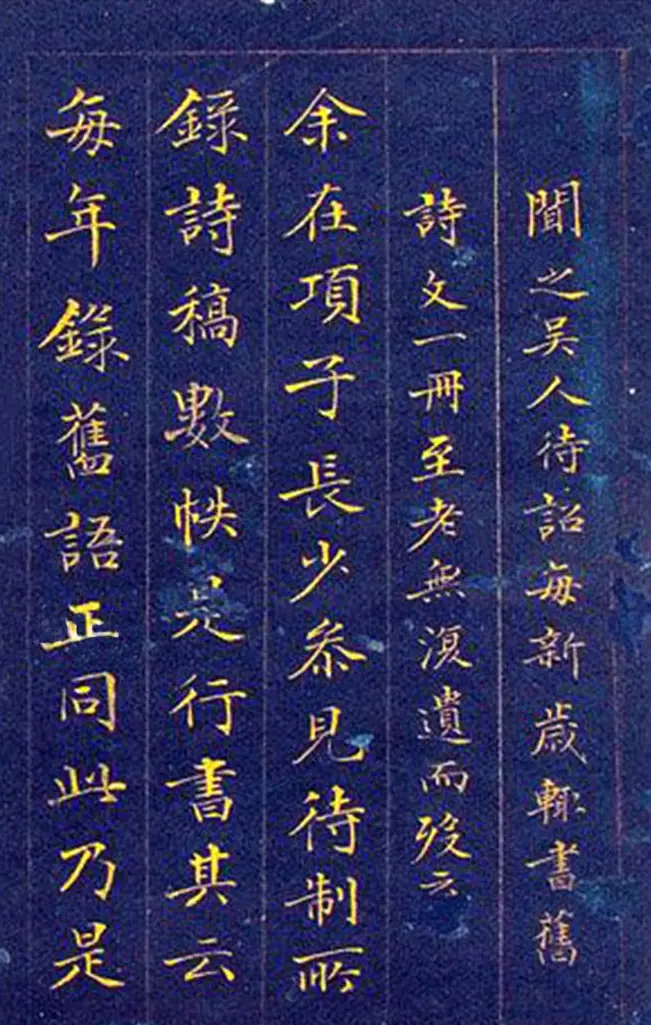 聞之吳人待詔每新歲輒書舊
詩文一冊至老無復遺而歿云
余在項子長少參見待制所
錄詩稿數帙是行書其云
每年錄舊語正同此乃是